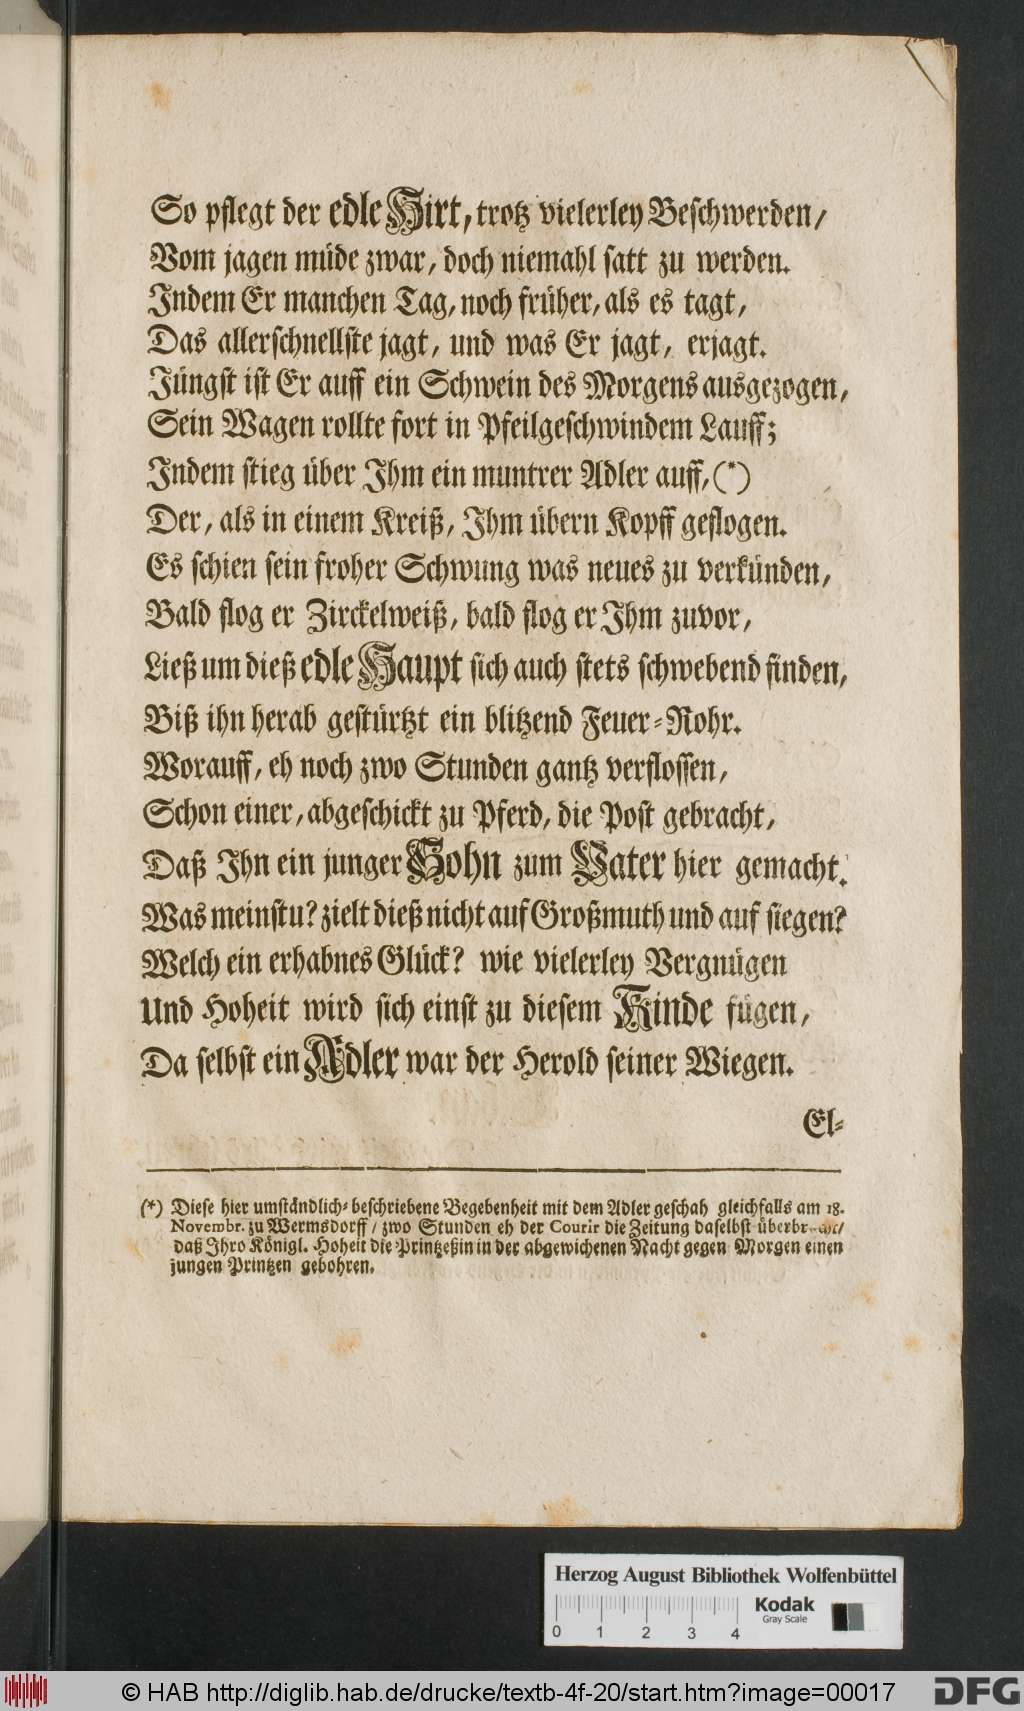 So pflegt der edle Hirt, trotz vielerley Beschwerden /
Vom jagen müde zwar, doch niemahl satt zu werden.
Indem Er manchen Tag, noch früher, als es tagt,
Das allerschnellste jagt, und was Er jagt, erjagt.
Jüngst ist Er auff ein Schwein des Morgens ausgezogen,
Sein Wagen rollte fort in Pfeilgeschwindem Lauff;
Indem stieg über Ihm ein muntrer Adler auff, (*)
Der, als in einem Kreiß, Ihm übern Kopff geflogen.
Es schien sein froher Schwung was neues zu verkünden,
Bald flog er Zirckelweiß, bald flog er Ihm zuvor,
Ließ um dieß edle Haupt sich auch stets schwebend finden,
Biß ihn herab gestürtzt ein blitzend Feuer-Rohr.
Worauff, eh noch zwo Stunden gantz verflossen,
Schon einer, abgeschickt zu Pferd, die Post gebracht,
Daß Ihn ein junger Sohn zum Vater hier gemacht.
Was meinstu? zielt dieß nicht auf Großmuth und auf siegen?
Welch ein erhabnes Glück? wie vielerley Vergnügen
Und Hoheit wird sich einst zu diesem Kinde fügen,
Da selbst ein Adler war der Herold seiner Wiegen.
El-
(*) Diese hier umständlich-beschriebene Begebenheit mit dem Adler geschah gleichfalls am 18.
Novembr. zu Wermsdorff / zwo Stunden eh der Courir die Zeitung daselbst überbracht /
daß Ihro Königl. Hoheit die Printzeßin in der abgewichenen Nacht gegen Morgen einen
jungen Printzen gebohren.
Herzog August Bibliothek Wolfenbüttel
Kodak
Gray Scale
0 1 2 3 4
© HAB http://diglib.hab.de/drucke/textb-4f-20/start.htm?image=00017
DFG